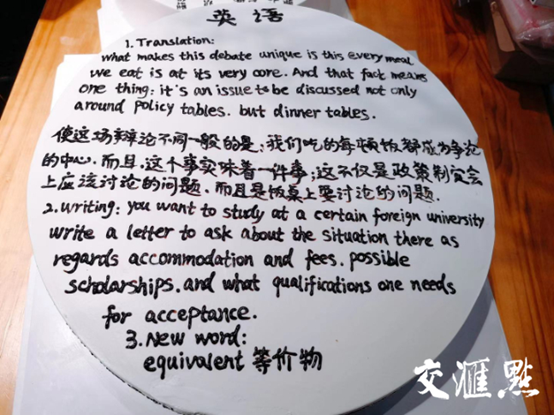 英语
1. Translation:
What makes this debate unique is this every meal
we eat is at its very core. And that fact means
one thing: it's an issue to be discussed not only
around policy tables. but dinner tables.
使这场辩论不同一般的是；我们吃的每顿饭都成为争论
的中心．而且．这个事实味着一件事；这不仅是政策制定会
上应该讨论的问题．而且是饭桌上要讨论的问题．
2. Writing: you want to study at a certain foreign university
write a letter to ask about the situation there as
regards accommodation and fees. possible
scholarships. and what qualifications one needs
for acceptance.
3. New word:
equivalent 等价物
交汇點